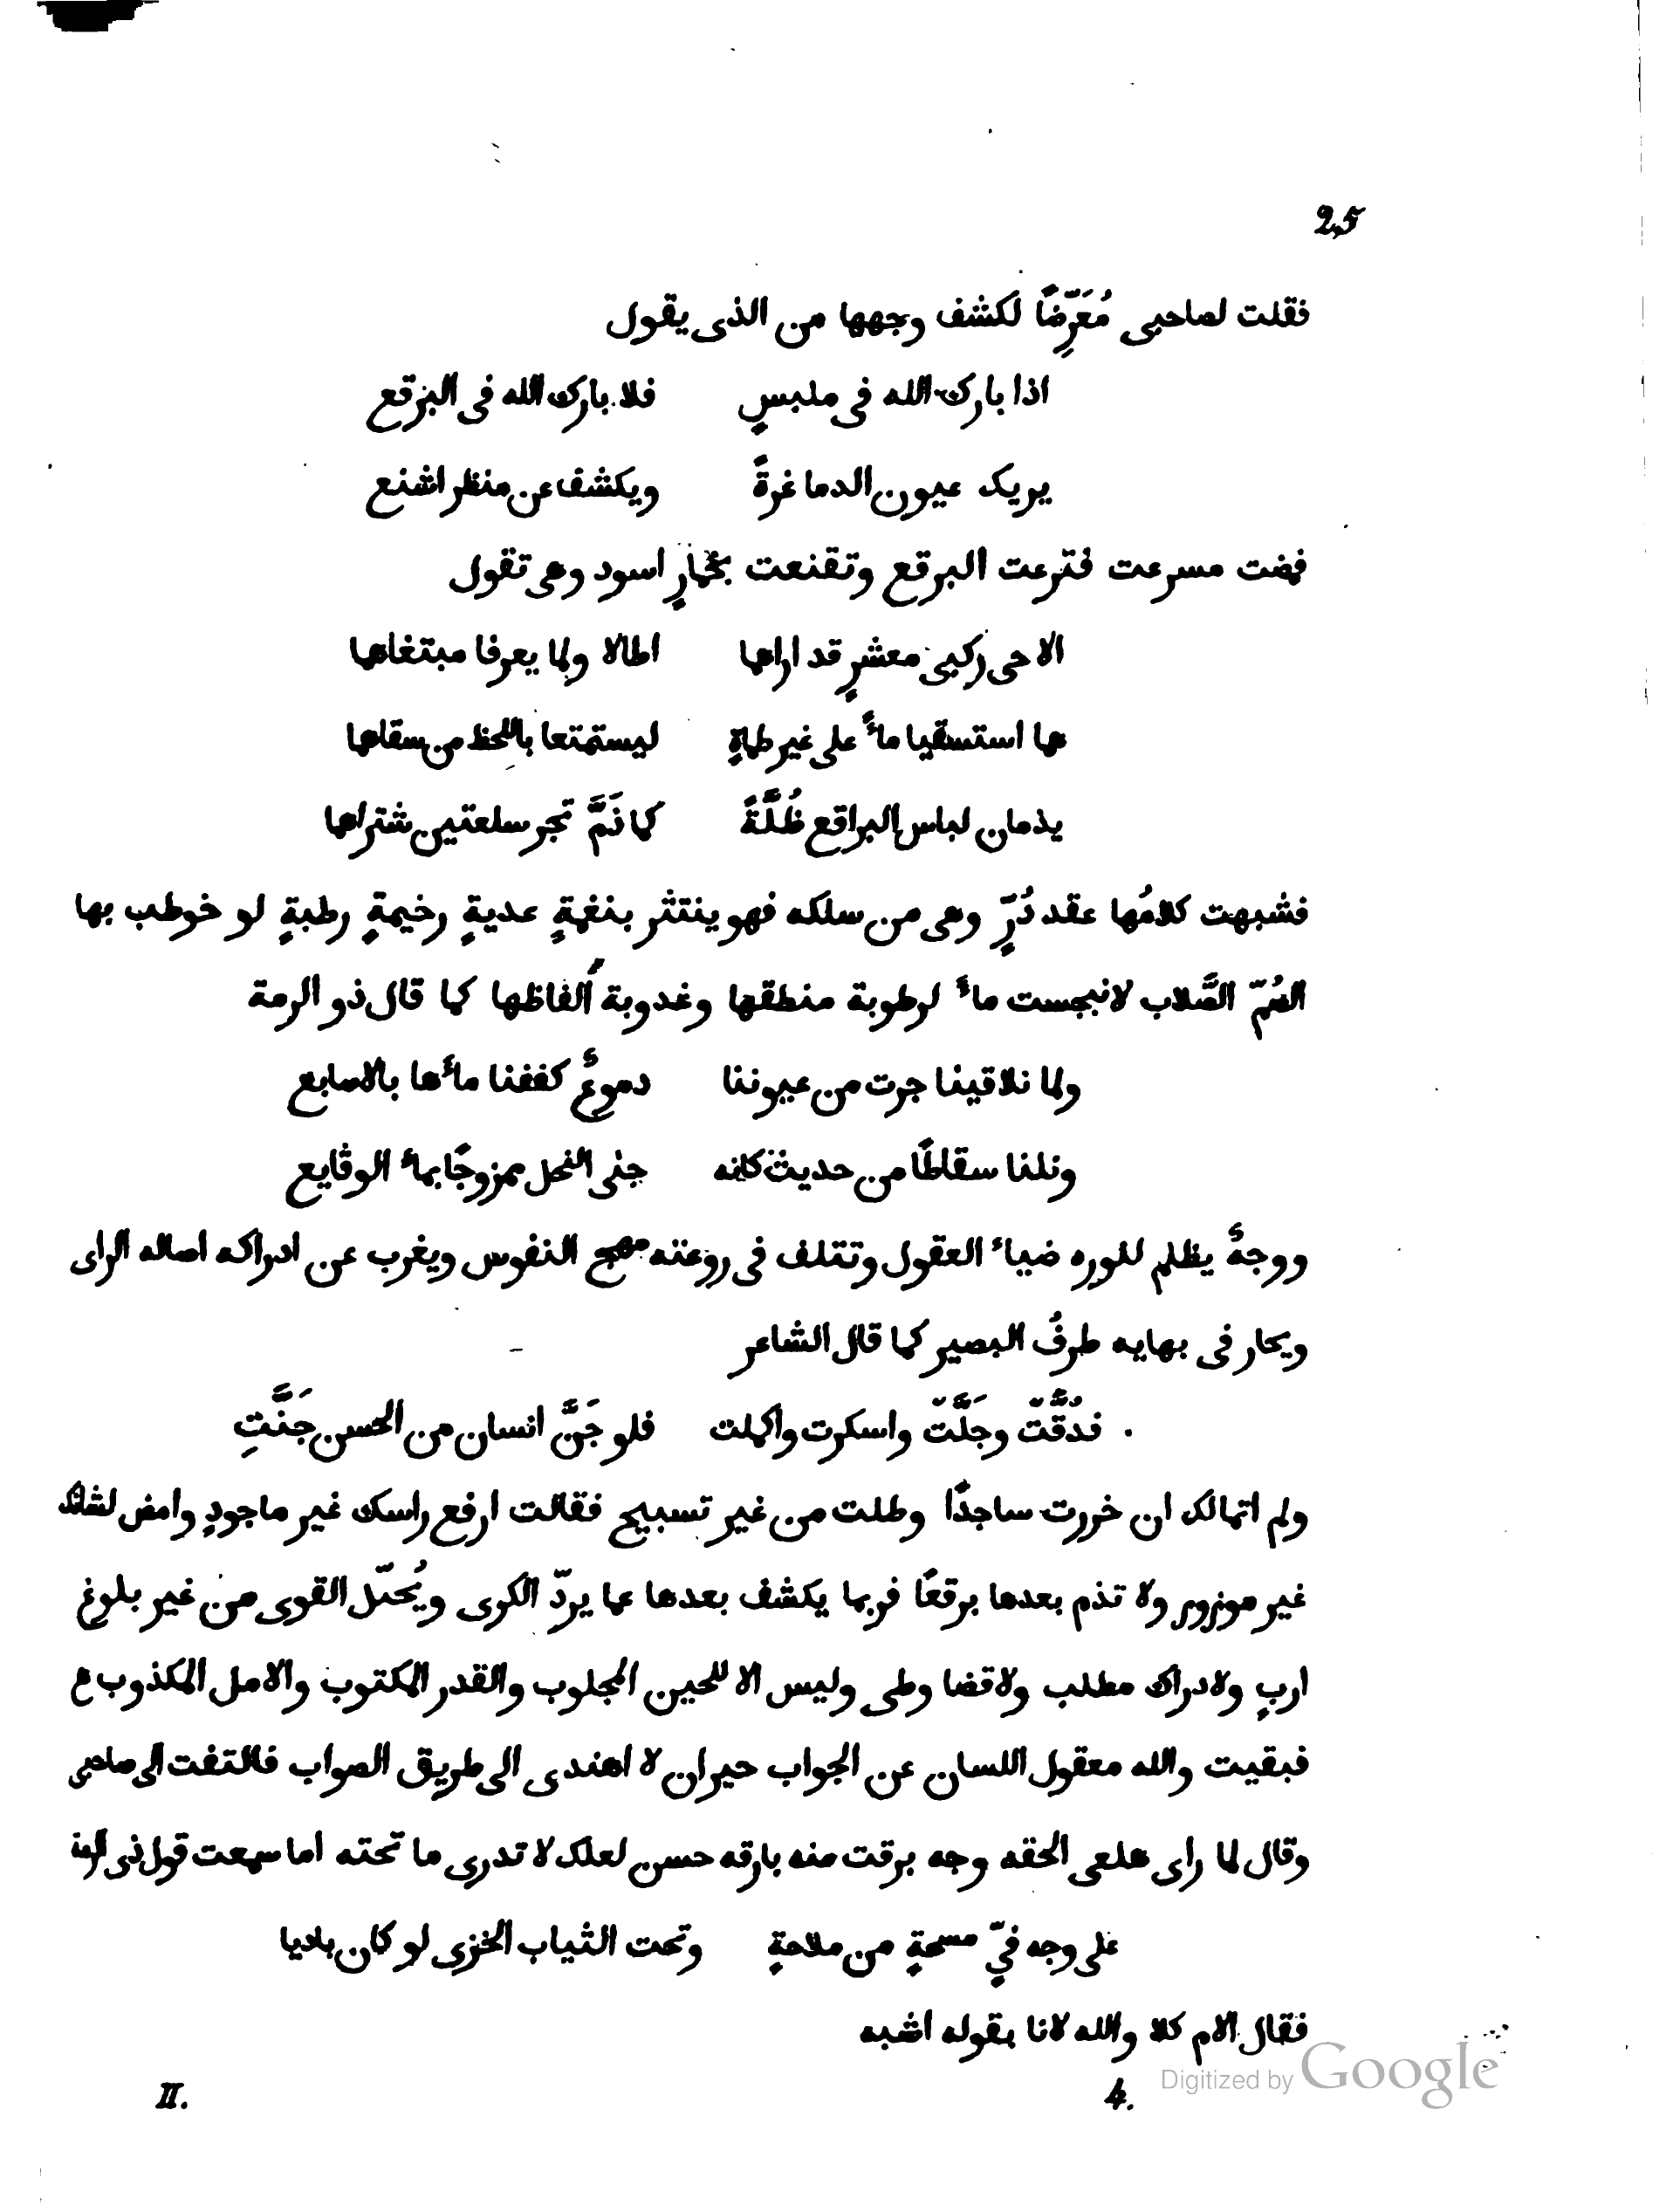 25
فقلت لصاحبى مُعَرِّضًا لكشف وجهها من الذى يقول
اذا بارك الله فى ملبسٍ فلا بارك الله فى البرقع
يريك عيون الدما غرةً ويكشف عن منظر اشنع
فمضت مسرعت فنزعت البرقع وتقنعت بخمارٍ اسود وهى تقول
الا حى ركبى معشرٍ قد اراهما اطالا ولما يعرفا مبتغاهما
هما استسقيا ماءً على غير ظماةٍ ليستمتعا باللحظ من سقاهما
يذمان لباس البراقع ظُلَّةً كما ذَمَّ تجر سلعتين شتراهما
فشبهت كلامُها عقد دُرٍّ وهى من سلكه فهو ينتثر بنغمةٍ عديةٍ رخيمةٍ رطبةٍ لو خوطب بها
الصُمّ الصَّلاب لانبجست ماءً لرطوبة منطقها وغدوبة ألفاظها كما قال ذو الرمة
ولما تلاقينا جرت من عيوننا دموعٌ كففنا ماءها بالاصابع
ونلنا سقاطًا من حديث كانه جنى النحل ممزوجًا بماء الوقايع
ووجهٌ يظلم لنوره ضياء العقول وتتلف فى روعته مهج النفوس ويغرب عن ادراكه اصاله الراى
ويحار فى بهايه طرفُ البصير كما قال الشاعر
فدُقَّتْ وجَلَّتْ واسكرت واكملت فلو جَنَّ انسان من الحسن جَنَّتِ
ولم اتمالك ان خررت ساجدًا وطلت من غير تسبيح فقالت ارفع راسك غير ماجودٍ وامض لشانك
غير موزور ولا تذم بعدها برقعًا فربما يكشف بعدها عما يردّ الكرى ويُحَلّ القوى من غير بلوغ
اربٍ ولادراك مطلب ولاقضا وطى وليس الا للحين المجلوب والقدر المكتوب والامل المكذوب ع
فبقيت والله معقول اللسان عن الجواب حيران لا اهندى الى طريق الصواب فالتفت الى صاحبى
وقال لما راى هلعى الحقه وجه برقت منه بارقه حسن لعلك لا تدرى ما تحته اما سمعت قول ذى الرمة
على وجه فيٍّ مسحةٍ من ملاحةٍ وتحت الثياب الخزى لو كان باديا
فقال الام كلا والله لانا بقوله اشبه
II. 4.
Digitized by Google